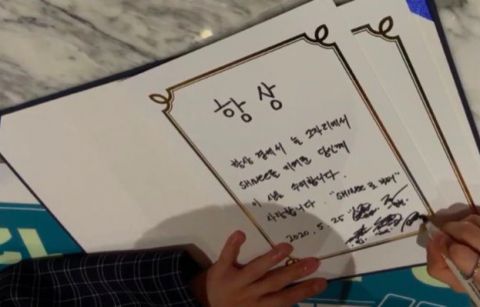 항상
항상 곁에서 늘 그자리에서
SHINee로 이어준 당신께
이 상을 수여합니다.
사랑합니다. "SHINee로부터"
2020. 5. 25